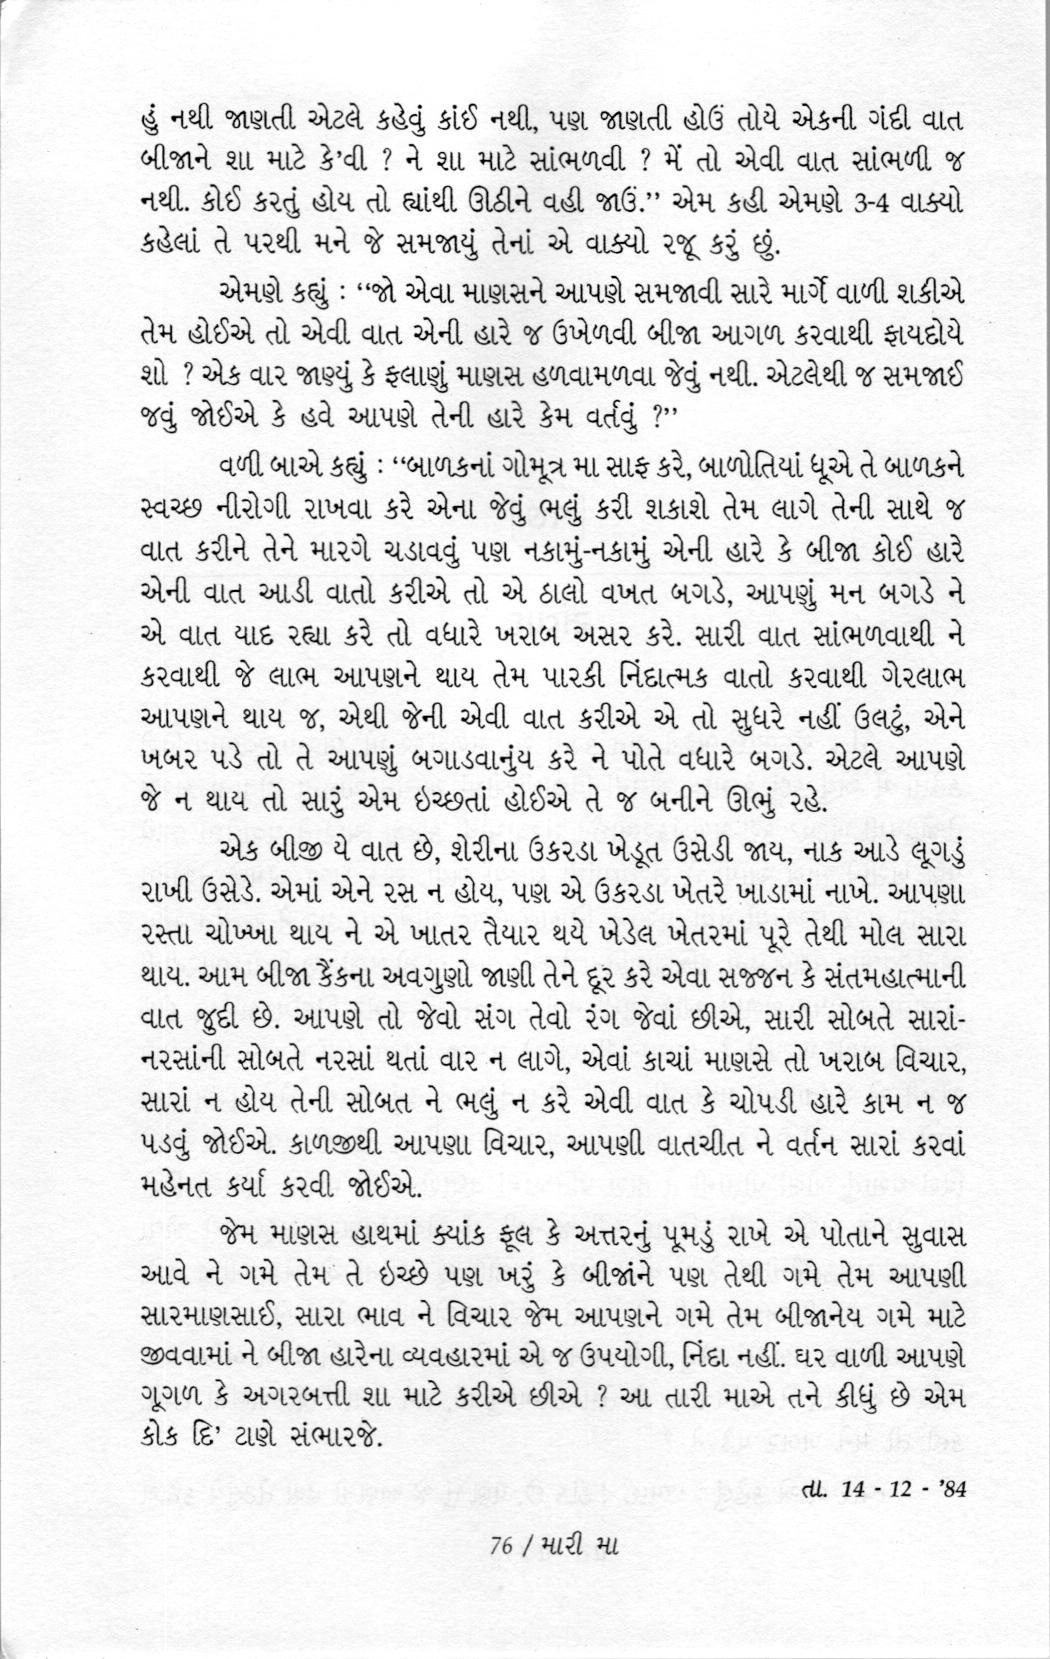 હું નથી જાણતી એટલે કહેવું કાંઈ નથી, પણ જાણતી હોઉં તોયે એકની ગંદી વાત
બીજાને શા માટે કે'વી ? ને શા માટે સાંભળવી ? મેં તો એવી વાત સાંભળી જ
નથી. કોઈ કરતું હોય તો હ્યાંથી ઊઠીને વહી જાઉં.” એમ કહી એમણે 3-4 વાક્યો
કહેલાં તે પરથી મને જે સમજાયું તેનાં એ વાક્યો રજૂ કરું છું.
એમણે કહ્યું : “જો એવા માણસને આપણે સમજાવી સારે માર્ગે વાળી શકીએ
તેમ હોઈએ તો એવી વાત એની હારે જ ઉખેળવી બીજા આગળ કરવાથી ફાયદોયે
શો ? એક વાર જાણ્યું કે ફલાણું માણસ હળવામળવા જેવું નથી. એટલેથી જ સમજાઈ
જવું જોઈએ કે હવે આપણે તેની હારે કેમ વર્તવું ?”
વળી બાએ કહ્યું : “બાળકનાં ગોમૂત્ર મા સાફ કરે, બાળોતિયાં ધૂએ તે બાળકને
સ્વચ્છ નીરોગી રાખવા કરે એના જેવું ભલું કરી શકાશે તેમ લાગે તેની સાથે જ
વાત કરીને તેને મારગે ચડાવવું પણ નકામું-નકામું એની હારે કે બીજા કોઈ હારે
એની વાત આડી વાતો કરીએ તો એ ઠાલો વખત બગડે, આપણું મન બગડે ને
એ વાત યાદ રહ્યા કરે તો વધારે ખરાબ અસર કરે. સારી વાત સાંભળવાથી ને
કરવાથી જે લાભ આપણને થાય તેમ પારકી નિંદાત્મક વાતો કરવાથી ગેરલાભ
આપણને થાય જ, એથી જેની એવી વાત કરીએ એ તો સુધરે નહીં ઉલટું, એને
ખબર પડે તો તે આપણું બગાડવાનુંય કરે ને પોતે વધારે બગડે. એટલે આપણે
જે ન થાય તો સારું એમ ઇચ્છતાં હોઈએ તે જ બનીને ઊભું રહે.
એક બીજી યે વાત છે, શેરીના ઉકરડા ખેડૂત ઉસેડી જાય, નાક આડે લૂગડું
રાખી ઉસેડે. એમાં એને રસ ન હોય, પણ એ ઉકરડા ખેતરે ખાડામાં નાખે. આપણા
રસ્તા ચોખ્ખા થાય ને એ ખાતર તૈયાર થયે ખેડેલ ખેતરમાં પૂરે તેથી મોલ સારા
થાય. આમ બીજા કૈંકના અવગુણો જાણી તેને દૂર કરે એવા સજ્જન કે સંતમહાત્માની
વાત જુદી છે. આપણે તો જેવો સંગ તેવો રંગ જેવાં છીએ, સારી સોબતે સારાં-
નરસાંની સોબતે નરસાં થતાં વાર ન લાગે, એવાં કાચાં માણસે તો ખરાબ વિચાર,
સારાં ન હોય તેની સોબત ને ભલું ન કરે એવી વાત કે ચોપડી હારે કામ ન જ
પડવું જોઈએ. કાળજીથી આપણા વિચાર, આપણી વાતચીત ને વર્તન સારાં કરવાં
મહેનત કર્યા કરવી જોઈએ.
જેમ માણસ હાથમાં ક્યાંક ફૂલ કે અત્તરનું પૂમડું રાખે એ પોતાને સુવાસ
આવે ને ગમે તેમ તે ઇચ્છે પણ ખરું કે બીજાંને પણ તેથી ગમે તેમ આપણી
સારમાણસાઈ, સારા ભાવ ને વિચાર જેમ આપણને ગમે તેમ બીજાનેય ગમે માટે
જીવવામાં ને બીજા હારેના વ્યવહારમાં એ જ ઉપયોગી, નિંદા નહીં. ઘર વાળી આપણે
ગૂગળ કે અગરબત્તી શા માટે કરીએ છીએ ? આ તારી માએ તને કીધું છે એમ
કોક દિ' ટાણે સંભારજે.
તા. 14 - 12 - '84
76 / મારી મા